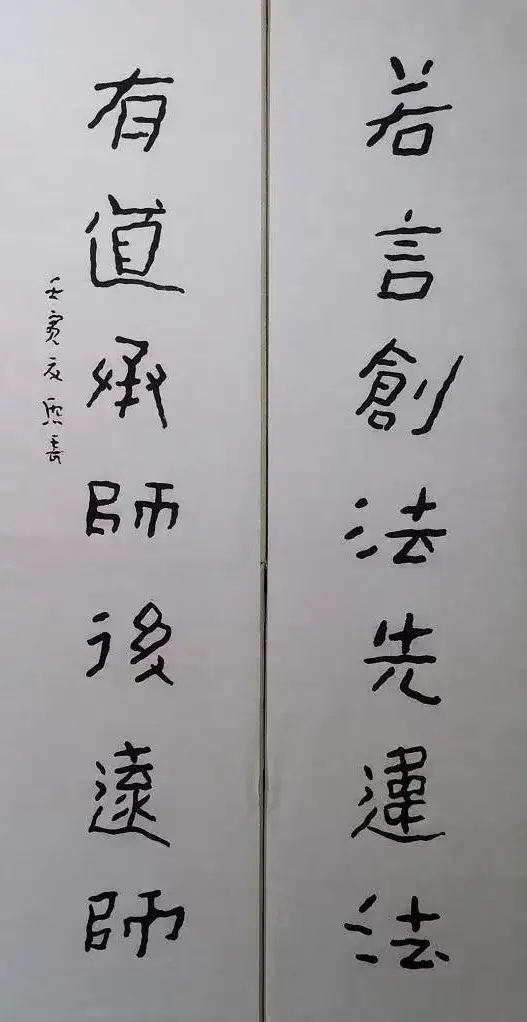 若言創法先違法
有道承師後遠師
壬寅友聚長